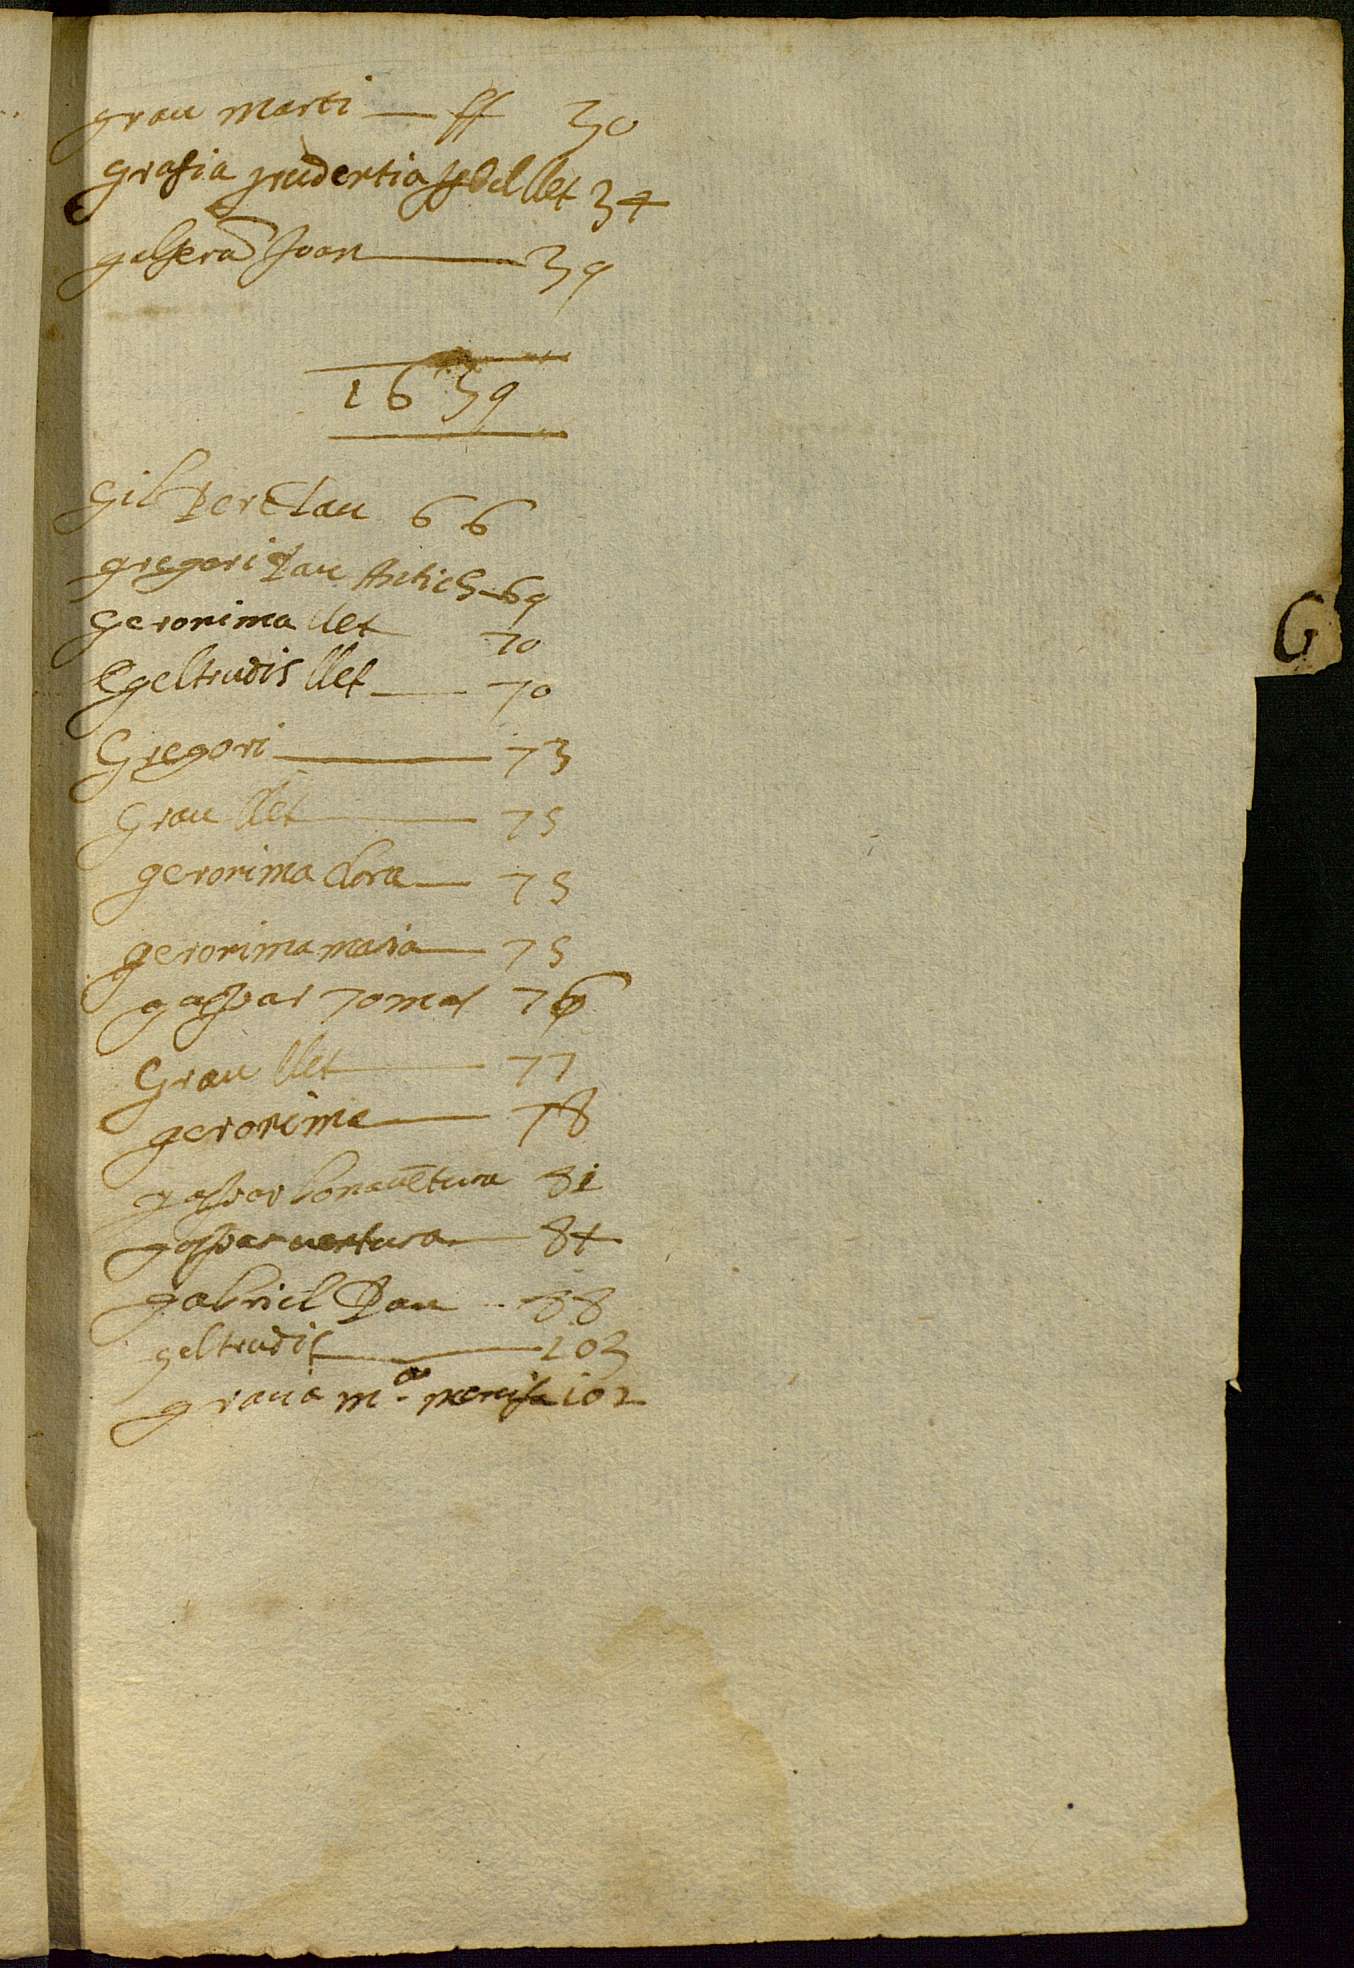 grau marti — ff 30
grasia prudentia llet 34
galserã Joan — 39
1639
Gil Pere lau 66
gregori Pau Antich - 69
Geronima llet 70
geltrudis llet — 70
Gregori — 73
Grau llet — 75
geronima clara — 75
geronima maria — 75
gaspar Tomas 76
Grau llet — 77
geronima — 78
gaspar bonauẽtura 81
gaspar uentura — 84
gabriel Pau 88
geltrudis — 103
gracia mª 102
G